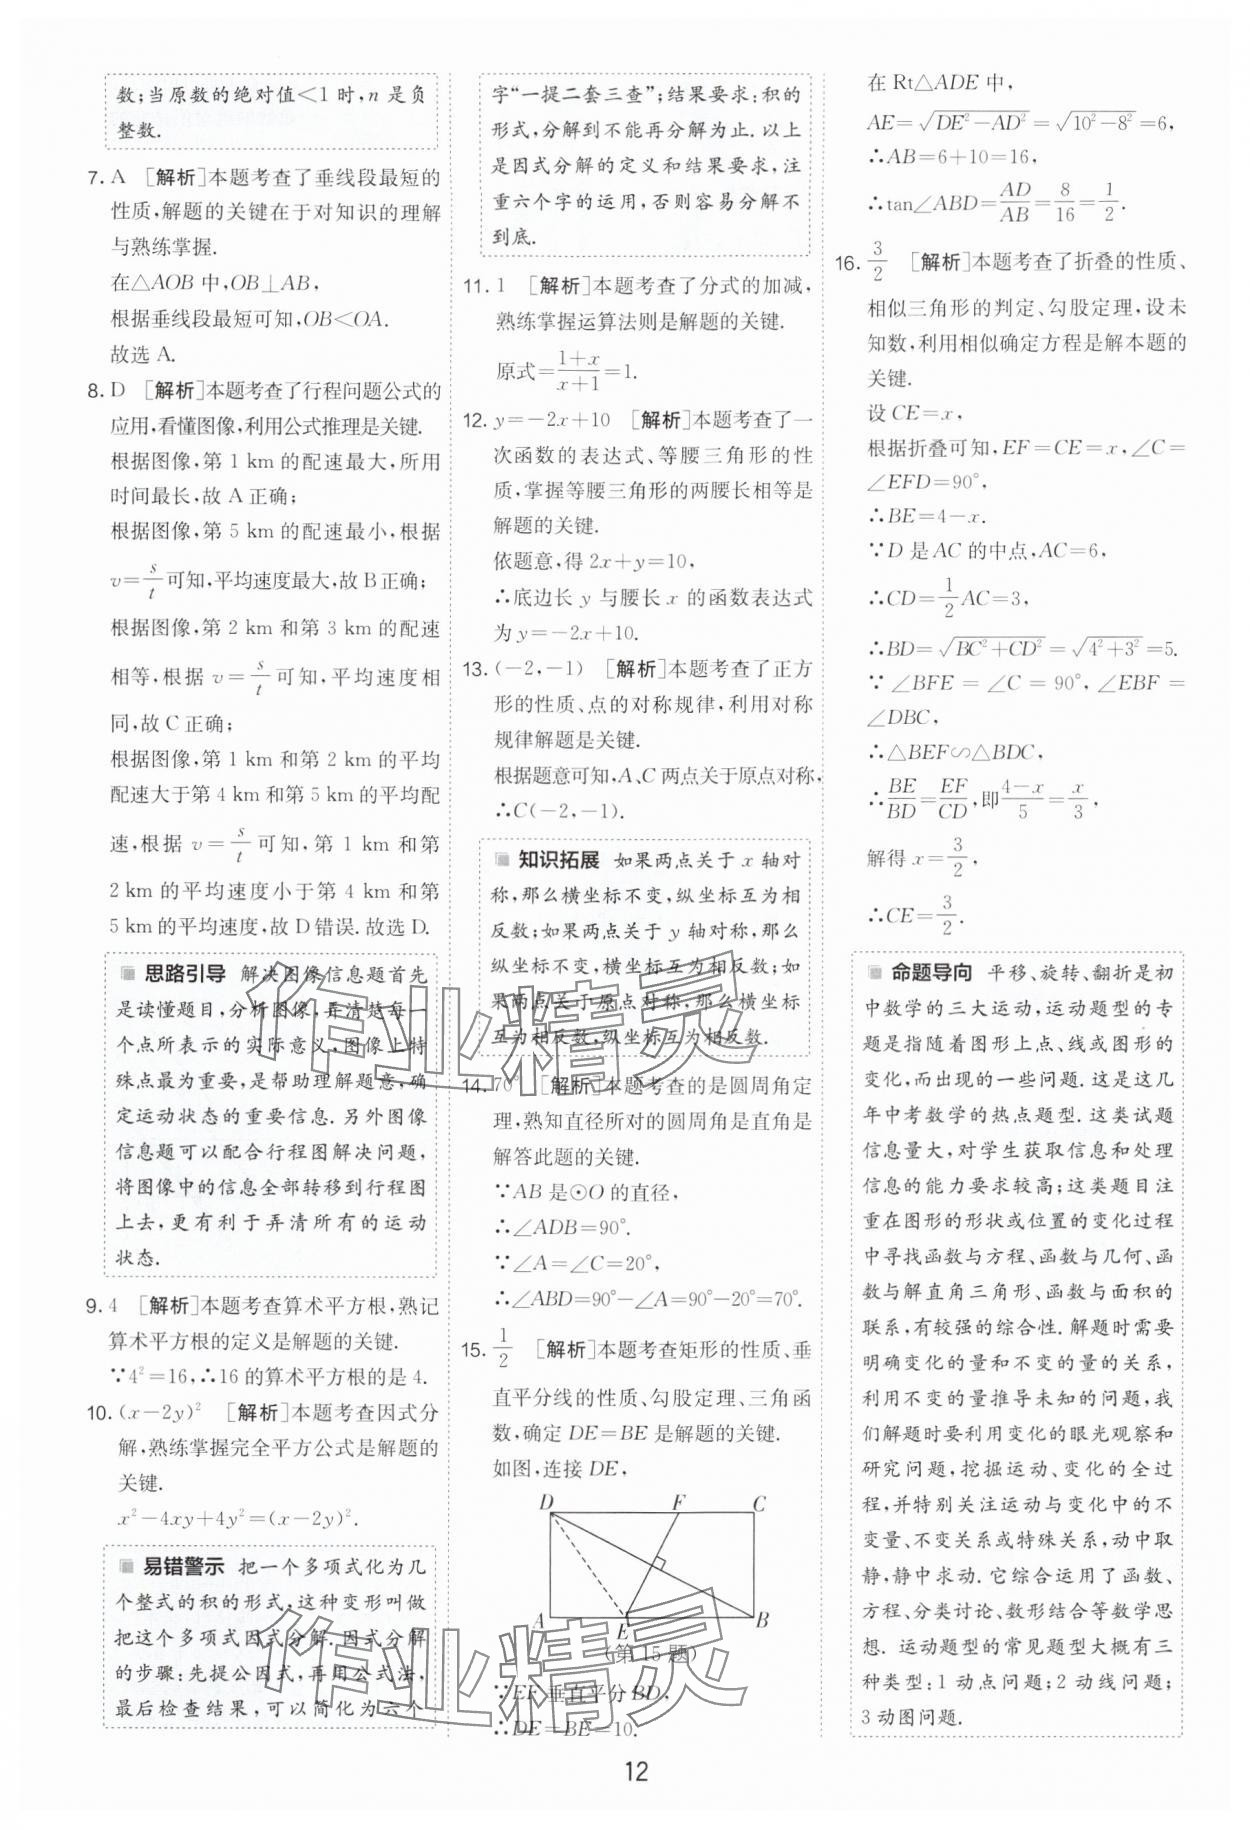 数;当原数的绝对值<1时,n是负
整数.
7. A [解析]本题考查了垂线段最短的
性质,解题的关键在于对知识的理解
与熟练掌握.
在△AOB中,OB⊥AB,
根据垂线段最短可知,OB<OA.
故选A.
8. D [解析]本题考查了行程问题公式的
应用,看懂图像,利用公式推理是关键.
根据图像,第1 km的配速最大,所用
时间最长,故A正确;
根据图像,第5 km的配速最小,根据
v=s/t可知,平均速度最大,故B正确;
根据图像,第2 km和第3 km的配速
相等,根据v=s/t可知,平均速度相
同,故C正确;
根据图像,第1 km和第2 km的平均
配速大于第4 km和第5 km的平均配
速,根据v=s/t可知,第1 km和第
2 km的平均速度小于第4 km和第
5 km的平均速度,故D错误.故选D.
思路引导 解决图像信息题首先
是读懂题目,分析图像,弄清楚每一
个点所表示的实际意义,图像上特
殊点最为重要,是帮助理解题意,确
定运动状态的重要信息.另外图像
信息题可以配合行程图解决问题,
将图像中的信息全部转移到行程图
上去,更有利于弄清所有的运动
状态.
9. 4 [解析]本题考查算术平方根,熟记
算术平方根的定义是解题的关键.
∵4²=16,∴16的算术平方根是4.
10. (x-2y)² [解析]本题考查因式分
解,熟练掌握完全平方公式是解题的
关键.
x²-4xy+4y²=(x-2y)².
易错警示 把一个多项式化为几
个整式的积的形式,这种变形叫做
把这个多项式因式分解.因式分解
的步骤:先提公因式,再用公式法,
最后检查结果,可以简化为六个
字“一提二套三查”;结果要求:积的
形式,分解到不能再分解为止.以上
是因式分解的定义和结果要求,注
重六个字的运用,否则容易分解不
到底.
11. 1 [解析]本题考查了分式的加减,
熟练掌握运算法则是解题的关键.
原式=(1+x)/(x+1)=1.
12. y=-2x+10 [解析]本题考查了一
次函数的表达式、等腰三角形的性
质,掌握等腰三角形的两腰长相等是
解题的关键.
依题意,得2x+y=10,
∴底边长y与腰长x的函数表达式
为y=-2x+10.
13. (-2,-1) [解析]本题考查了正方
形的性质、点的对称规律,利用对称
规律解题是关键.
根据题意可知,A、C两点关于原点对称,
∴C(-2,-1).
知识拓展 如果两点关于x轴对
称,那么横坐标不变,纵坐标互为相
反数;如果两点关于y轴对称,那么
纵坐标不变,横坐标互为相反数;如
果两点关于原点对称,那么横坐标
互为相反数,纵坐标互为相反数.
14. 70° [解析]本题考查的是圆周角定
理,熟知直径所对的圆周角是直角是
解答此题的关键.
∵AB是⊙O的直径,
∴∠ADB=90°.
∵∠A=∠C=20°,
∴∠ABD=90°-∠A=90°-20°=70°.
15. 1/2 [解析]本题考查矩形的性质、垂
直平分线的性质、勾股定理、三角函
数,确定DE=BE是解题的关键.
如图,连接DE,
D F C
A E B
(第15题)
∵EF垂直平分BD,
∴DE=BE=10.
在Rt△ADE中,
AE=√(DE²-AD²)=√(10²-8²)=6,
∴AB=6+10=16,
∴tan∠ABD=AD/AB=8/16=1/2.
16. 3/2 [解析]本题考查了折叠的性质、
相似三角形的判定、勾股定理,设未
知数,利用相似确定方程是解本题的
关键.
设CE=x,
根据折叠可知,EF=CE=x,∠C=
∠EFD=90°,
∴BE=4-x.
∵D是AC的中点,AC=6,
∴CD=1/2AC=3,
∴BD=√(BC²+CD²)=√(4²+3²)=5.
∵∠BFE=∠C=90°,∠EBF=
∠DBC,
∴△BEF∽△BDC,
∴BE/BD=EF/CD,即(4-x)/5=x/3,
解得x=3/2,
∴CE=3/2.
命题导向 平移、旋转、翻折是初
中数学的三大运动,运动题型的专
题是指随着图形上点、线或图形的
变化,而出现的一些问题.这是这几
年中考数学的热点题型.这类试题
信息量大,对学生获取信息和处理
信息的能力要求较高;这类题目注
重在图形的形状或位置的变化过程
中寻找函数与方程、函数与几何、函
数与解直角三角形、函数与面积的
联系,有较强的综合性.解题时需要
明确变化的量和不变的量的关系,
利用不变的量推导未知的问题,我
们解题时要利用变化的眼光观察和
研究问题,挖掘运动、变化的全过
程,并特别关注运动与变化中的不
变量、不变关系或特殊关系,动中取
静,静中求动.它综合运用了函数、
方程、分类讨论、数形结合等数学思
想.运动题型的常见题型大概有三
种类型:1动点问题;2动线问题;
3动图问题.
12
作业精灵
作业精灵